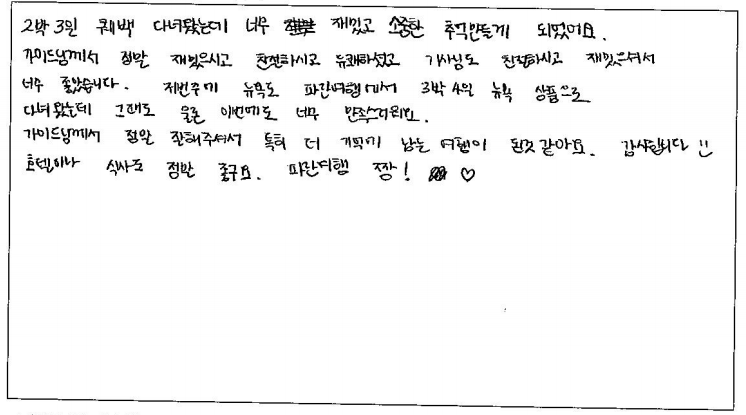 2박 3일 퀘백 다녀왔는데 너무 재밌고 소중한 추억만들게 되었어요.
가이드님께서 정말 재밌으시고 친절하시고 유쾌하셨고 기사님도 친절하시고 재밌으셔서
너무 좋았습니다. 저번주에 뉴욕도 파란여행에서 3박 4일 뉴욕 상품으로
다녀왔는데 그때도 물론 이번에도 너무 만족스러워요.
가이드님께서 정말 잘해주셔서 특히 더 기억에 남는 여행이 된것 같아요. 감사합니다 :)
호텔이나 식사도 정말 좋구요. 파란여행 짱! ♡